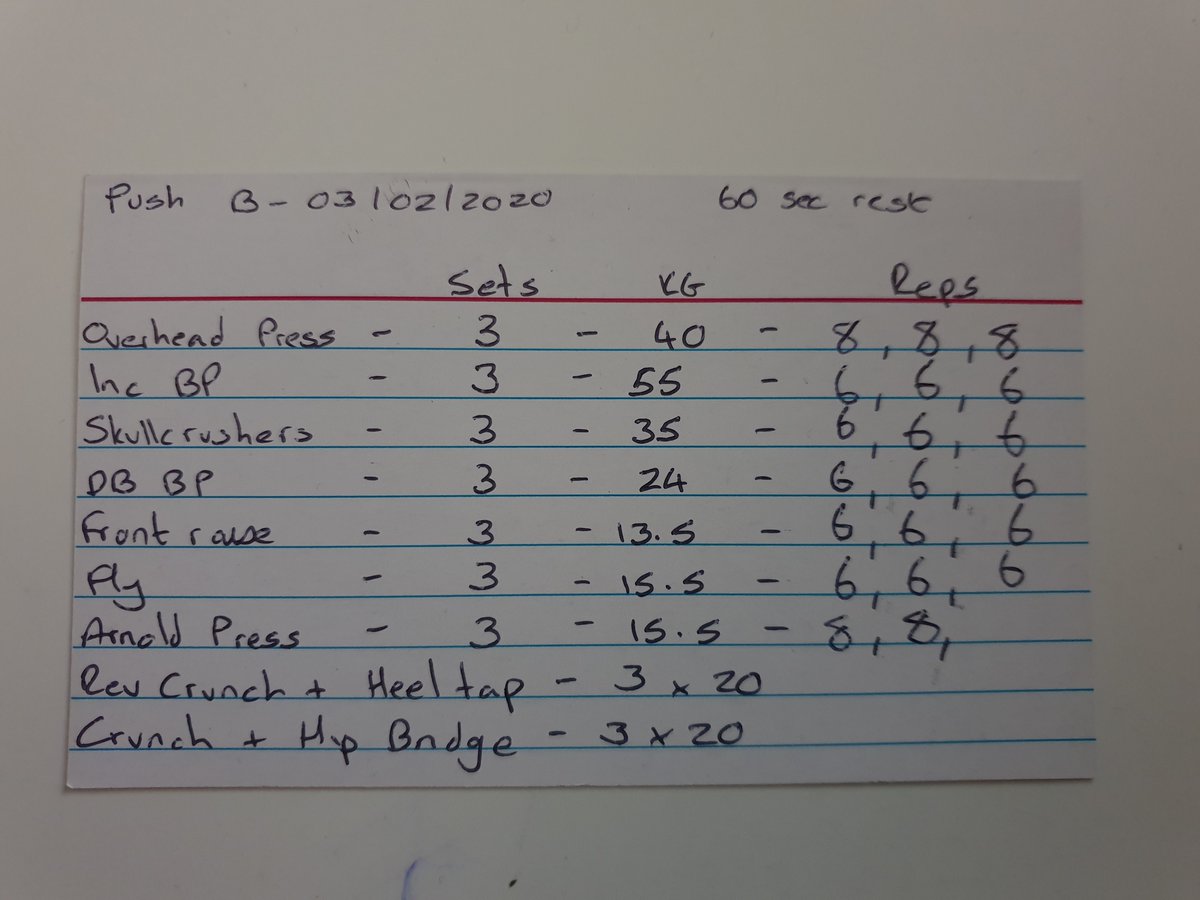 Push B - 03/02/2020 60 sec rest
Sets KG Reps
Overhead Press - 3 - 40 - 8, 8, 8
Inc BP - 3 - 55 - 6, 6, 6
Skullcrushers - 3 - 35 - 6, 6, 6
DB BP - 3 - 24 - 6, 6, 6
Front raise - 3 - 13.5 - 6, 6, 6
Fly - 3 - 15.5 - 6, 6, 6
Arnold Press - 3 - 15.5 - 8, 8,
Rev Crunch + Heel tap - 3 x 20
Crunch + Hip Bridge - 3 x 20